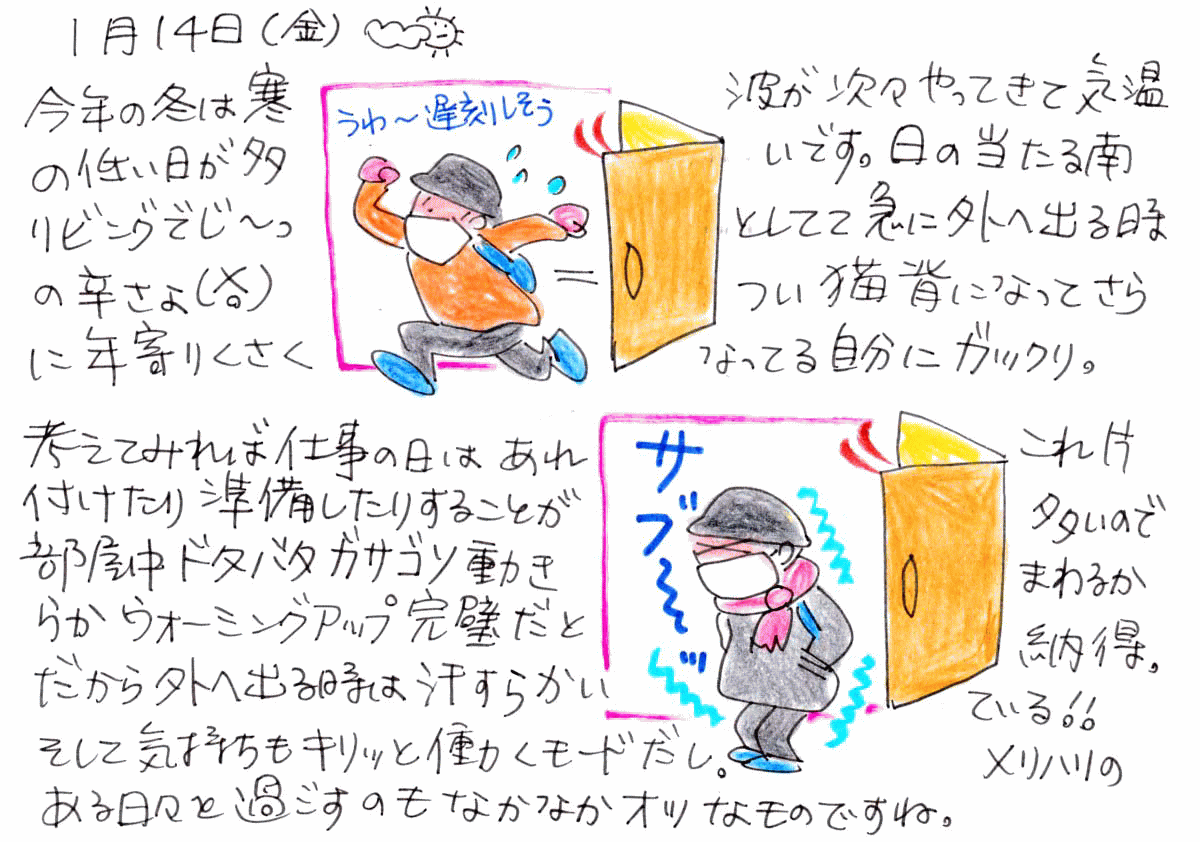 1月14日(金)
今年の冬は寒波が次々やってきて気温
の低い日が多いです。日の当たる南
リビングでじ〜っとしてて急に外へ出る時
の辛さよ
つい猫背になってさら
に年寄りくさくなってる自分にガックリ。
うわ〜遅刻しそう
考えてみれば仕事の日はあれこれ片
付けたり準備したりすることが多いので
部屋中ドタバタガサゴソ動きまわるか
らかウォーミングアップ完璧だと納得。
だから外へ出る時は汗すらかいている!!
そして気持ちもキリッと働かくモードだし。メリハリの
ある日々を過ごすのもなかなかオツなものですね。
サブ〜〜ッ